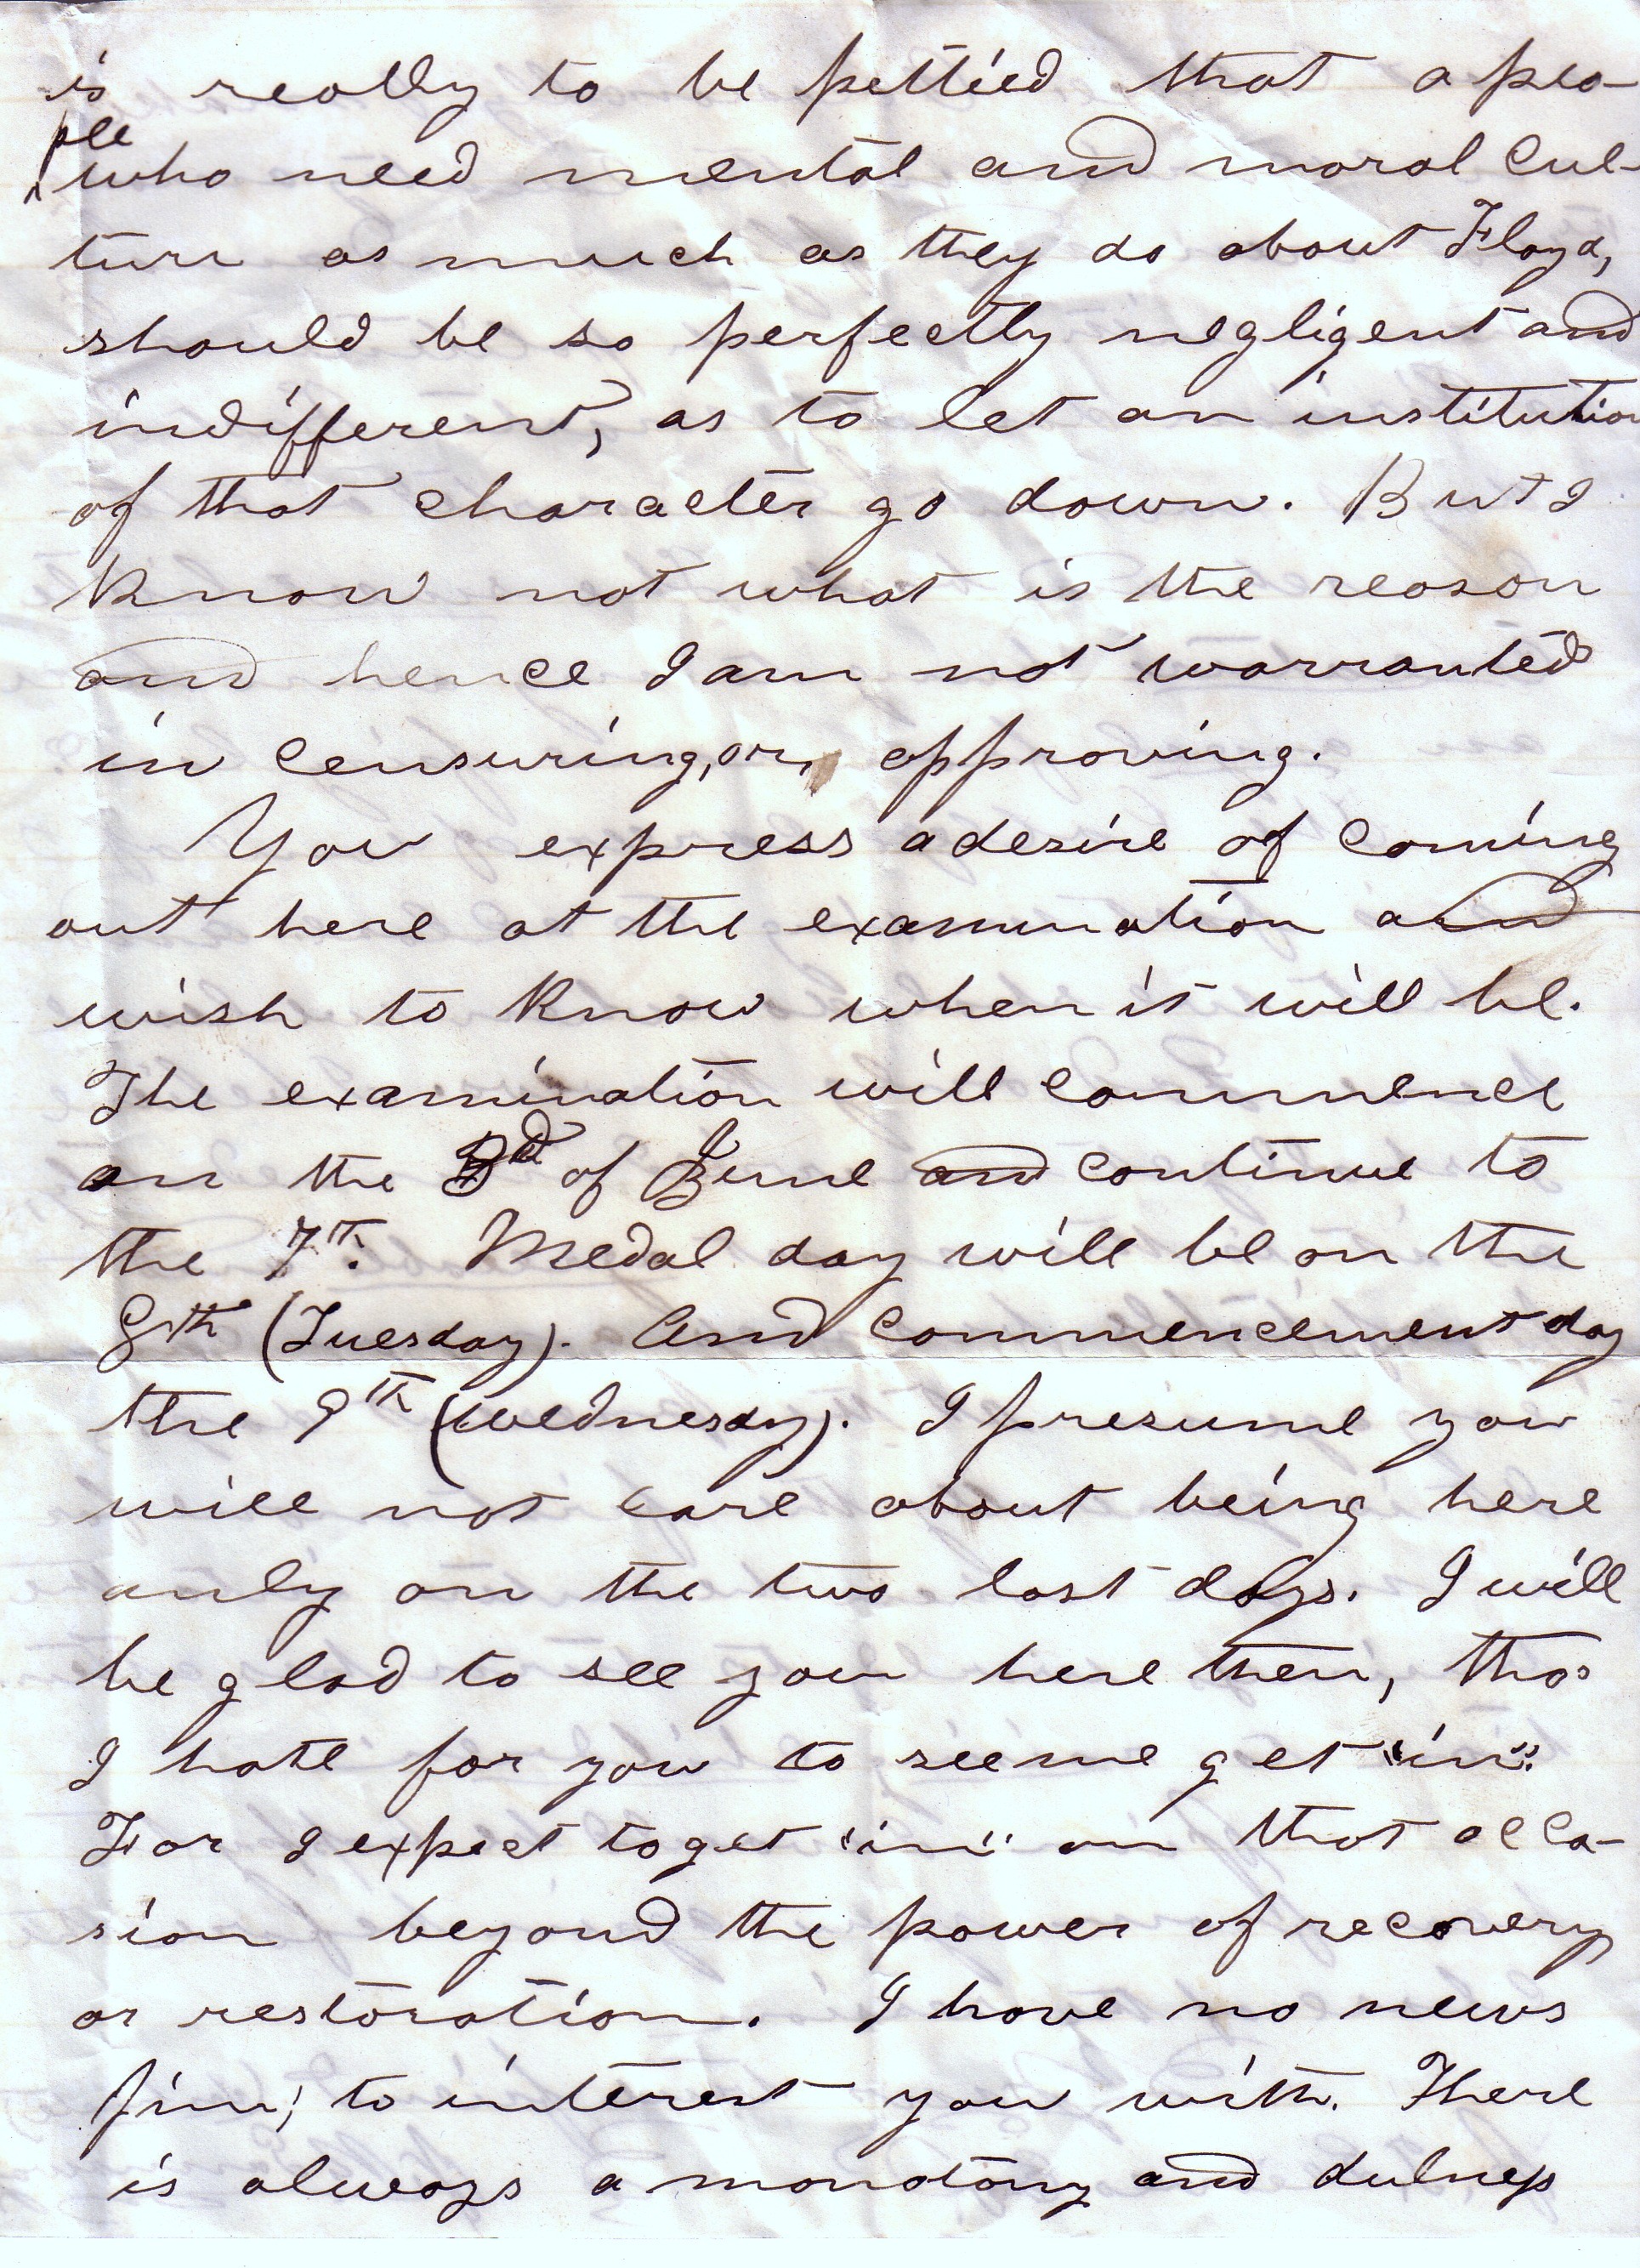 is really to be pettied that a peo-
ple
who need mental and moral cul-
ture as much as they do about Floyd,
should be so perfectly negligent and
indifferent, as to let an institution
of that character go down. But I
know not what is the reason
and hence I am not warranted
in censuring, or, approving.
You express a desire of coming
out here at the examination and
wish to know when it will be.
The examination will commence
on the 3d of June and continue to
the 7th. Medal day will be on the
8th (Tuesday). And commencement day
the 9th (Wednesday). I presume you
will not care about being here
only on the two last days. I will
be glad to see you here then, tho'
I hate for you to see me get "in".
For I expect to get "in" on that occa-
sion beyond the power of recovery
or restoration. I have no news
Jim; to interest you with. There
is always a monotony and dulness